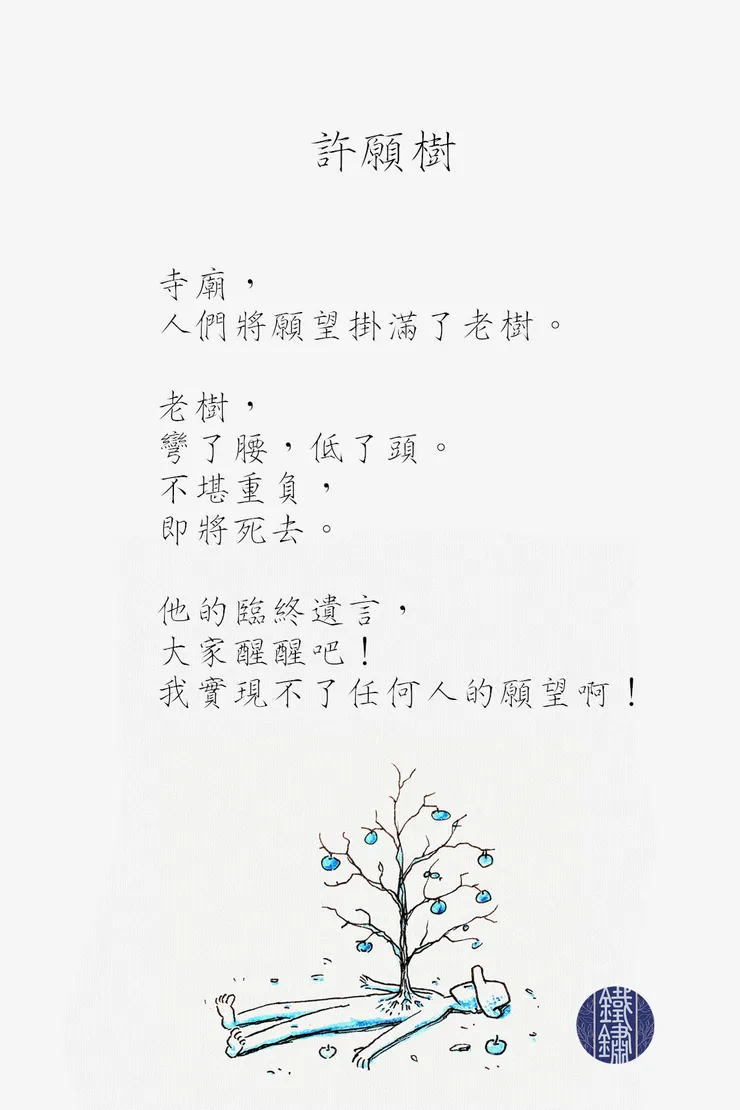 許願樹
寺廟，
人們將願望掛滿了老樹。
老樹，
彎了腰，低了頭。
不堪重負，
即將死去。
他的臨終遺言，
大家醒醒吧！
我實現不了任何人的願望啊！
鐵鏽